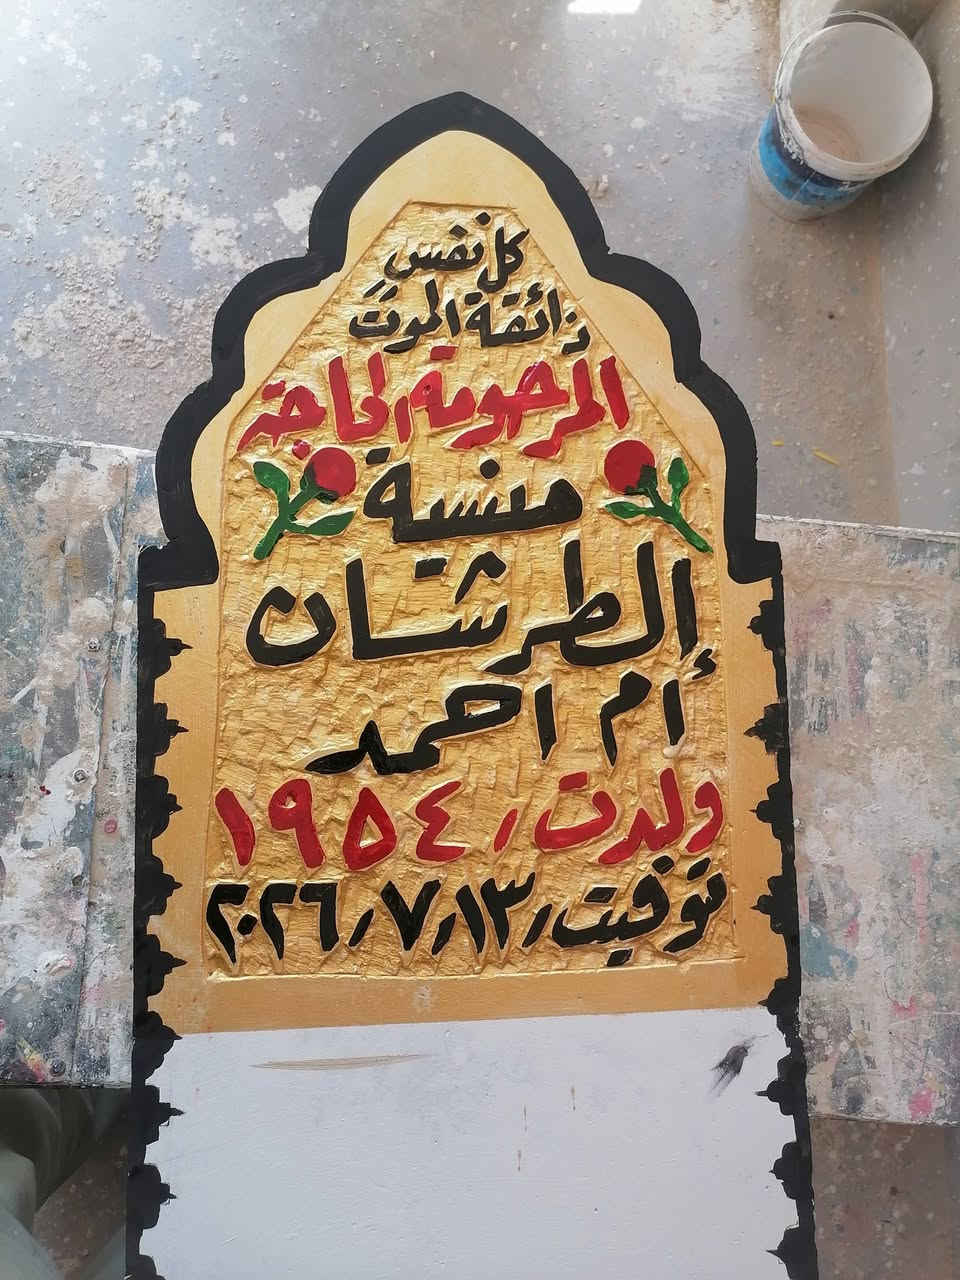 كل نفسٍ
ذائقة الموت
المرحومة الحاجة
منسية
الطرشان
أم احمد
ولدت، ١٩٥٤
توفيت، ١٣، ٧، ٢٠٢٦